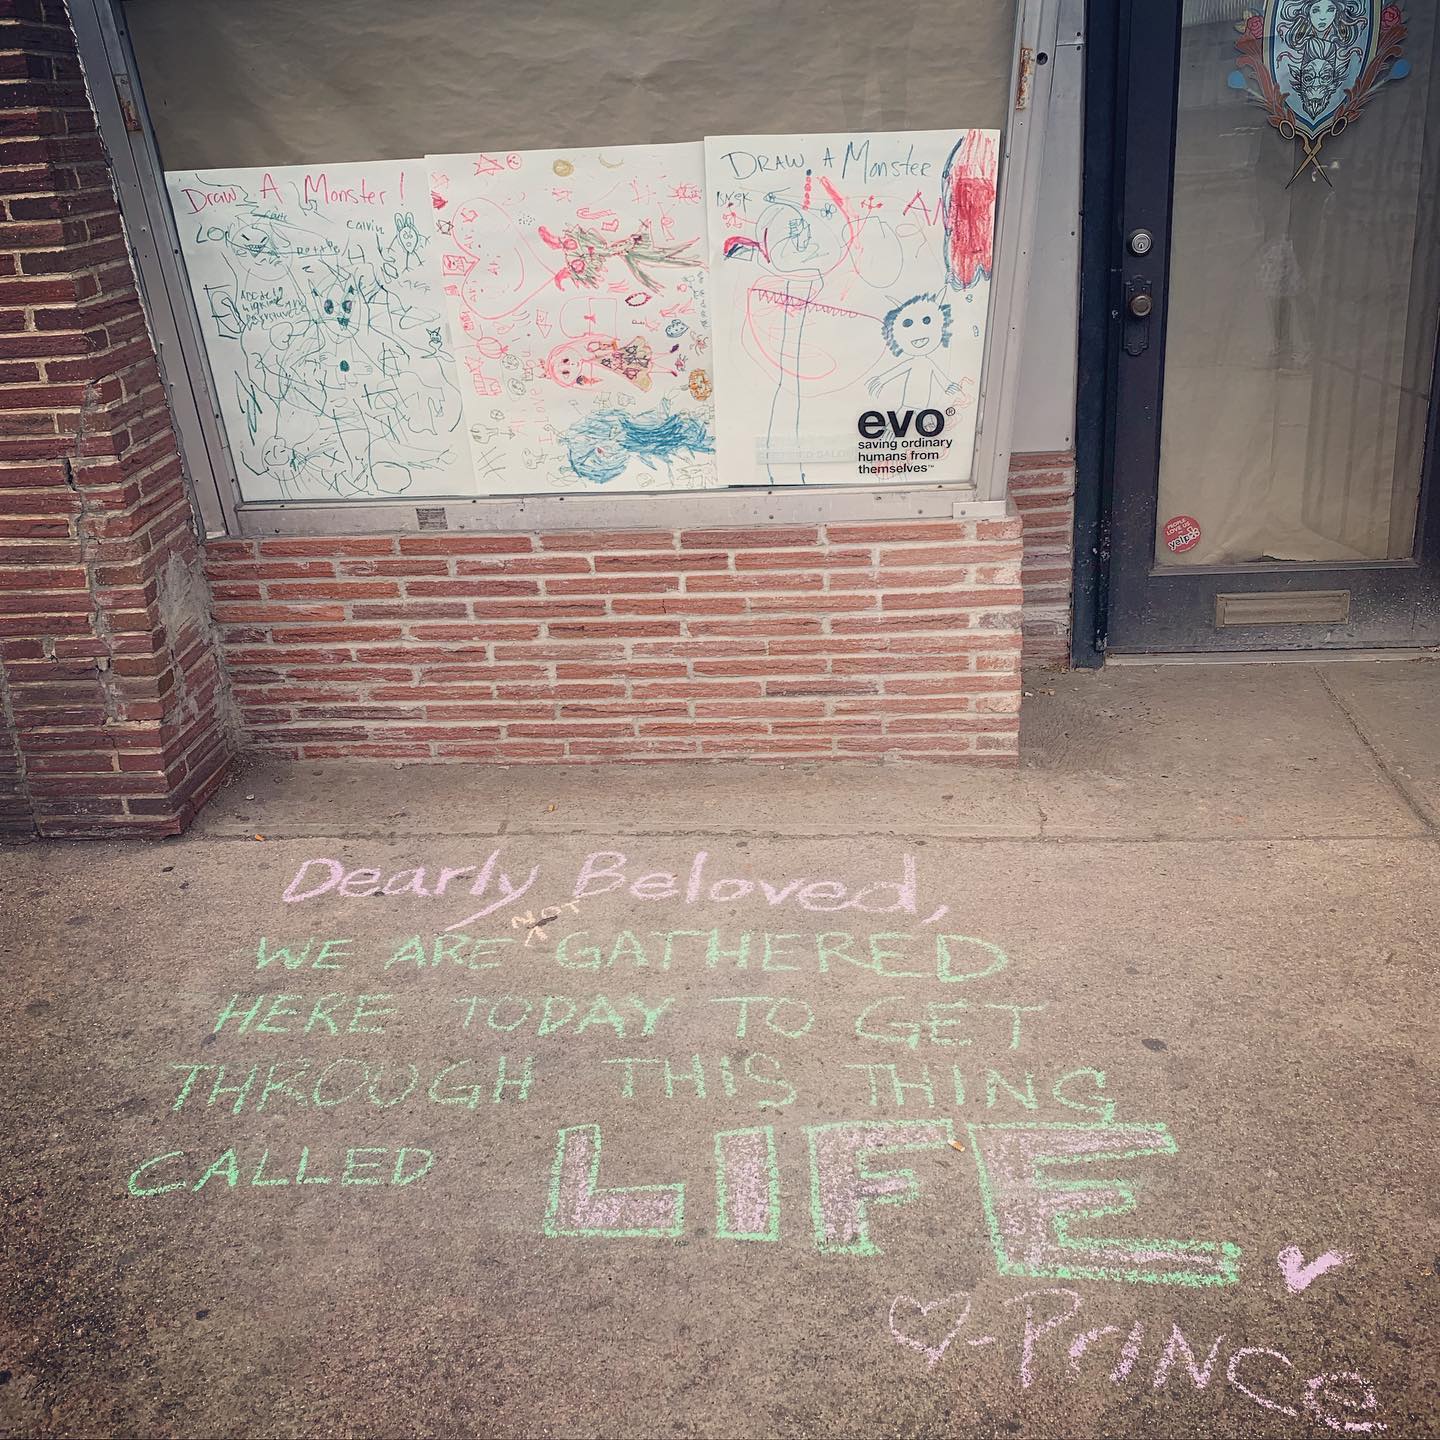 Draw A Monster!
Calvin
DRAW A MONSTER
evo®
saving ordinary
humans from
themselves™
PEOPLE
LOVE US
yelp
Dearly Beloved,
NOT
WE ARE ^ GATHERED
HERE TODAY TO GET
THROUGH THIS THING
CALLED LIFE
- PRINCe